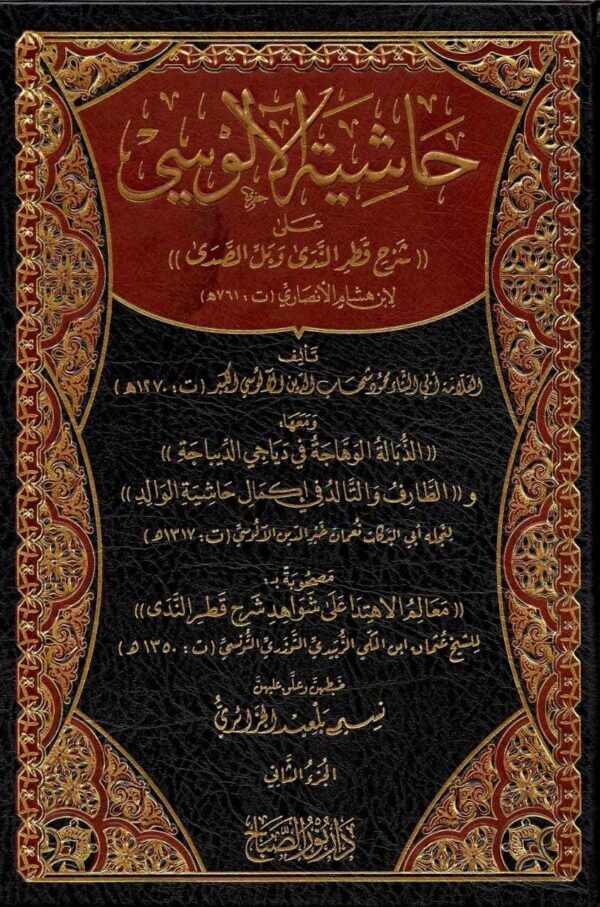 حَاشِيَةُ الآلُوسِيّ
عَلَى
((شَرْحِ قَطْرِ النَّدَى وَبَلِّ الصَّدَى))
لِابْنِ هِشَامٍ الأَنْصَارِيِّ (ت: ٧٦١هـ)
تَأْلِيف
العَلَّامَة أَبِي الثَّنَاء مَحْمُود شِهَاب الدِّين الآلُوسِيّ الكَبِير (ت: ١٢٧٠هـ)
وَمَعَهَا:
((الذُّبَالَةُ الوَهَّاجَةُ فِي دَيَاجِي الدِّيبَاجَةِ))
و ((الطَّارِفُ وَالتَّالِدُ فِي إِكْمَالِ حَاشِيَةِ الوَالِدِ))
لِنَجْلِهِ أَبِي البَرَكَاتِ نُعْمَان خَيْرِ الدِّينِ الآلُوسِيِّ (ت: ١٣١٧هـ)
مَصْحُوبَةً بـ:
((مَعَالِمُ الاهْتِدَا عَلَى شَوَاهِدِ شَرْحِ قَطْرِ النَّدَى))
لِلشَّيْخِ عُثْمَان ابْنِ المَكِّي الزُّبَيْدِيِّ التَّوْزَرِيِّ التُّونُسِيِّ (ت: ١٣٥٠هـ)
ضَبَطَهُنَّ وَعَلَّقَ عَلَيْهِنَّ
نسيم بَلْعِيد الجَزَائِرِيُّ
الجُزْءُ الثَّانِي
دَارُ نُورِ الصَّبَاحِ